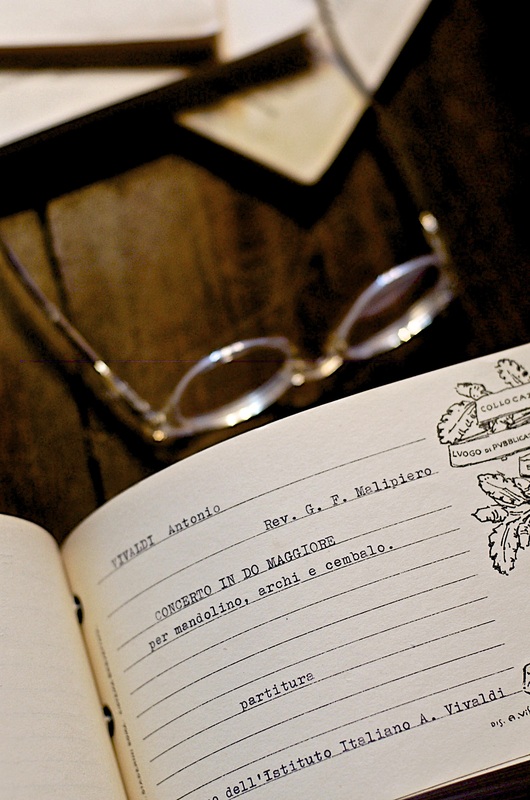 VIVALDI Antonio
Rev. G. F. Malipiero
CONCERTO IN DO MAGGIORE
per mandolino, archi e cembalo.
partitura
dell'Istituto Italiano A. Vivaldi
COLLOCAZ
LUOGO DI PUBBLICA
DIS. A. VI